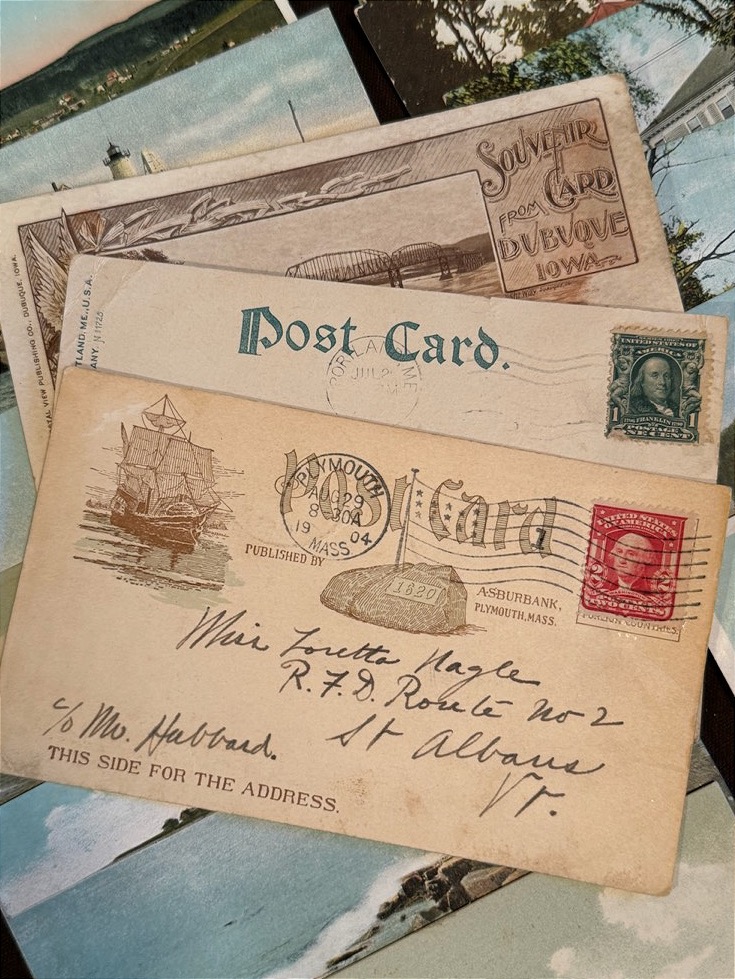 SOUVENIR
CARD
FROM
DUBUQUE
IOWA
VIEW PUBLISHING CO., DUBUQUE, IOWA.
Post Card.
PORTLAND, ME.
JUL 2
UNITED STATES
OF AMERICA
1 FRANKLIN 1
POSTAGE
ONE CENT
TLAND, ME., U.S.A.
ANY. N 11725
Post Card
PLYMOUTH
AUG 29
8-30A
19 04
MASS
1
UNITED STATES
OF AMERICA
2 2
POSTAGE
TWO CENTS
FOREIGN COUNTRIES.
PUBLISHED BY
1620
A.S. BURBANK,
PLYMOUTH, MASS.
Miss Loretta Nagle
R.F.D. Route No 2
St Albans
Vt.
c/o Mr. Hubbard.
THIS SIDE FOR THE ADDRESS.